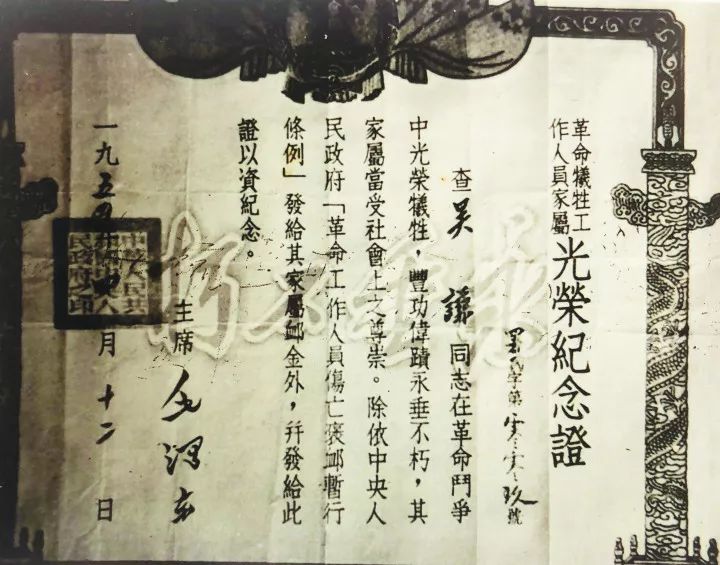 革命犧牲工
作人員家屬
光榮紀念證
字第零零玖號
查吴謙同志在革命鬥爭
中光榮犧牲，豐功偉蹟永垂不朽，其
家屬當受社會上之尊崇。除依中央人
民政府「革命工作人員傷亡褒卹暫行
條例」發給其家屬卹金外，幷發給此
證以資紀念。
主席 毛澤東
一九五四年 月十二日
中華人民共
和國中央人
民政府之印